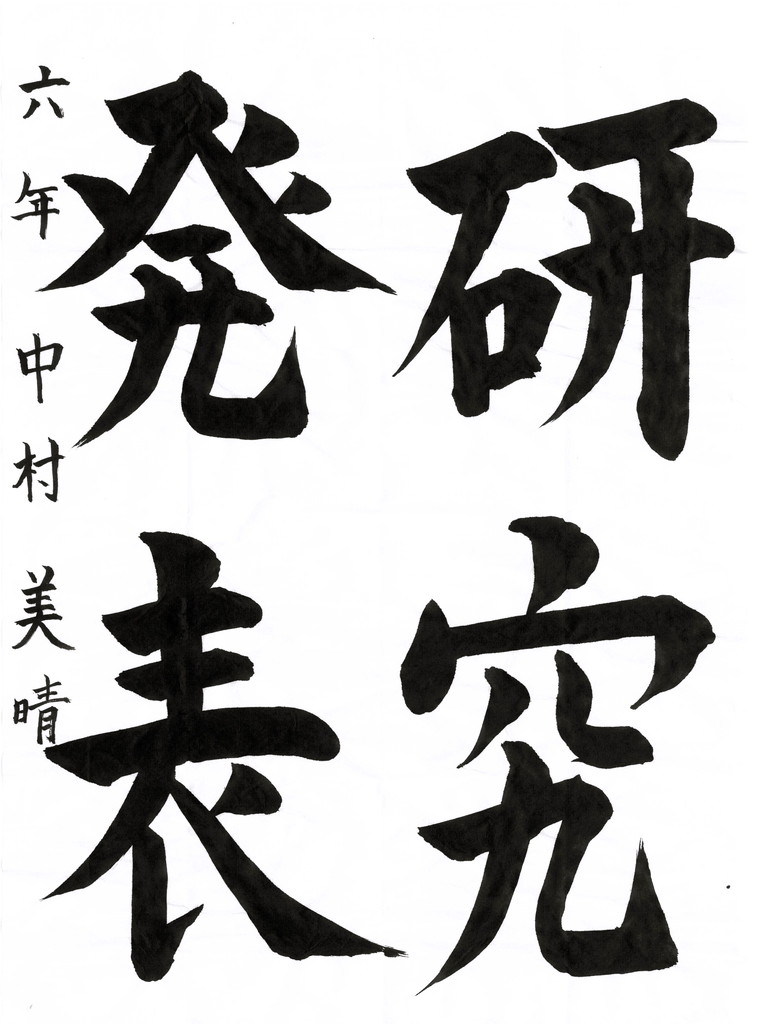 研究
発表
六年 中村 美晴